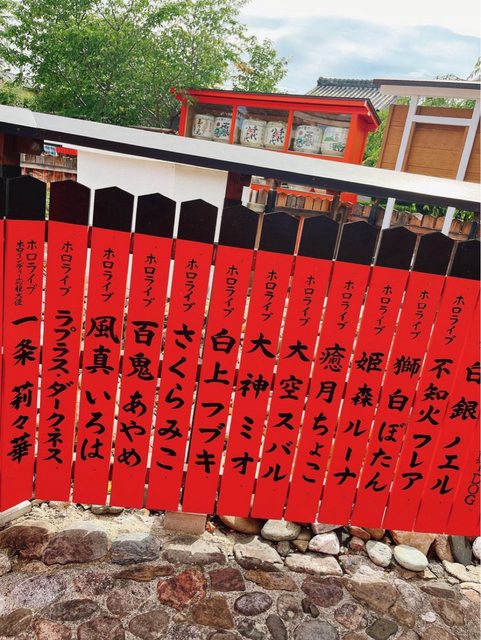 DOG
ホロライブ 白銀ノエル
ホロライブ 不知火フレア
ホロライブ 獅白ぼたん
ホロライブ 姫森ルーナ
ホロライブ 癒月ちょこ
ホロライブ 大空スバル
ホロライブ 大神ミオ
ホロライブ 白上フブキ
ホロライブ さくらみこ
ホロライブ 百鬼あやめ
ホロライブ 風真いろは
ホロライブ ラプラス・ダークネス
ホロライブ
一条莉々華